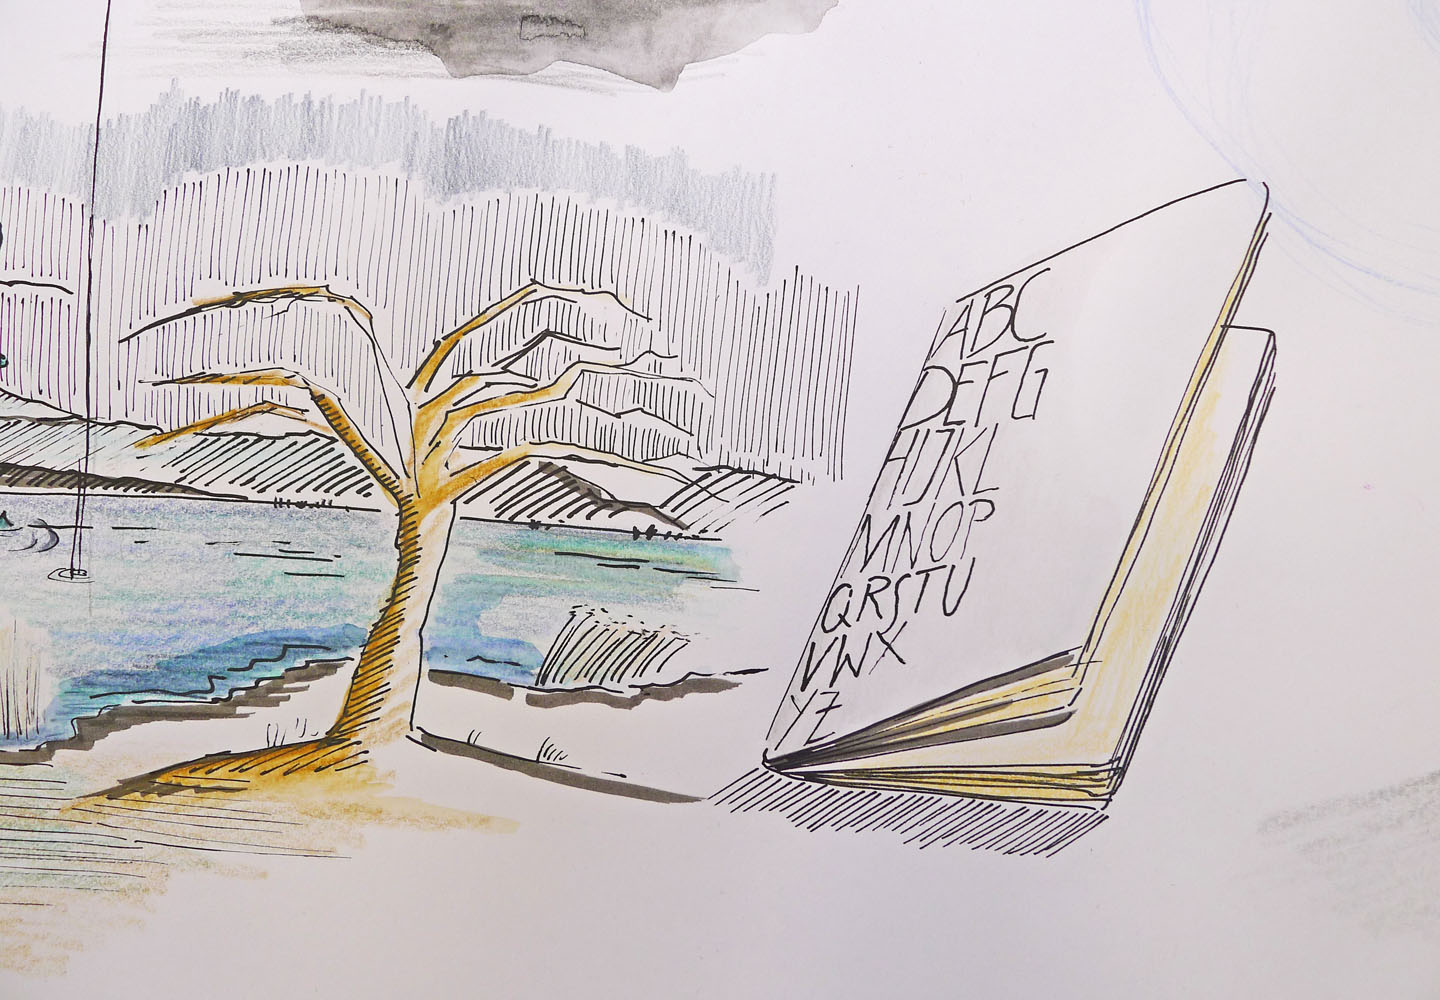 ABC
DEFG
HIJKL
MNOP
QRSTU
VWX
YZ